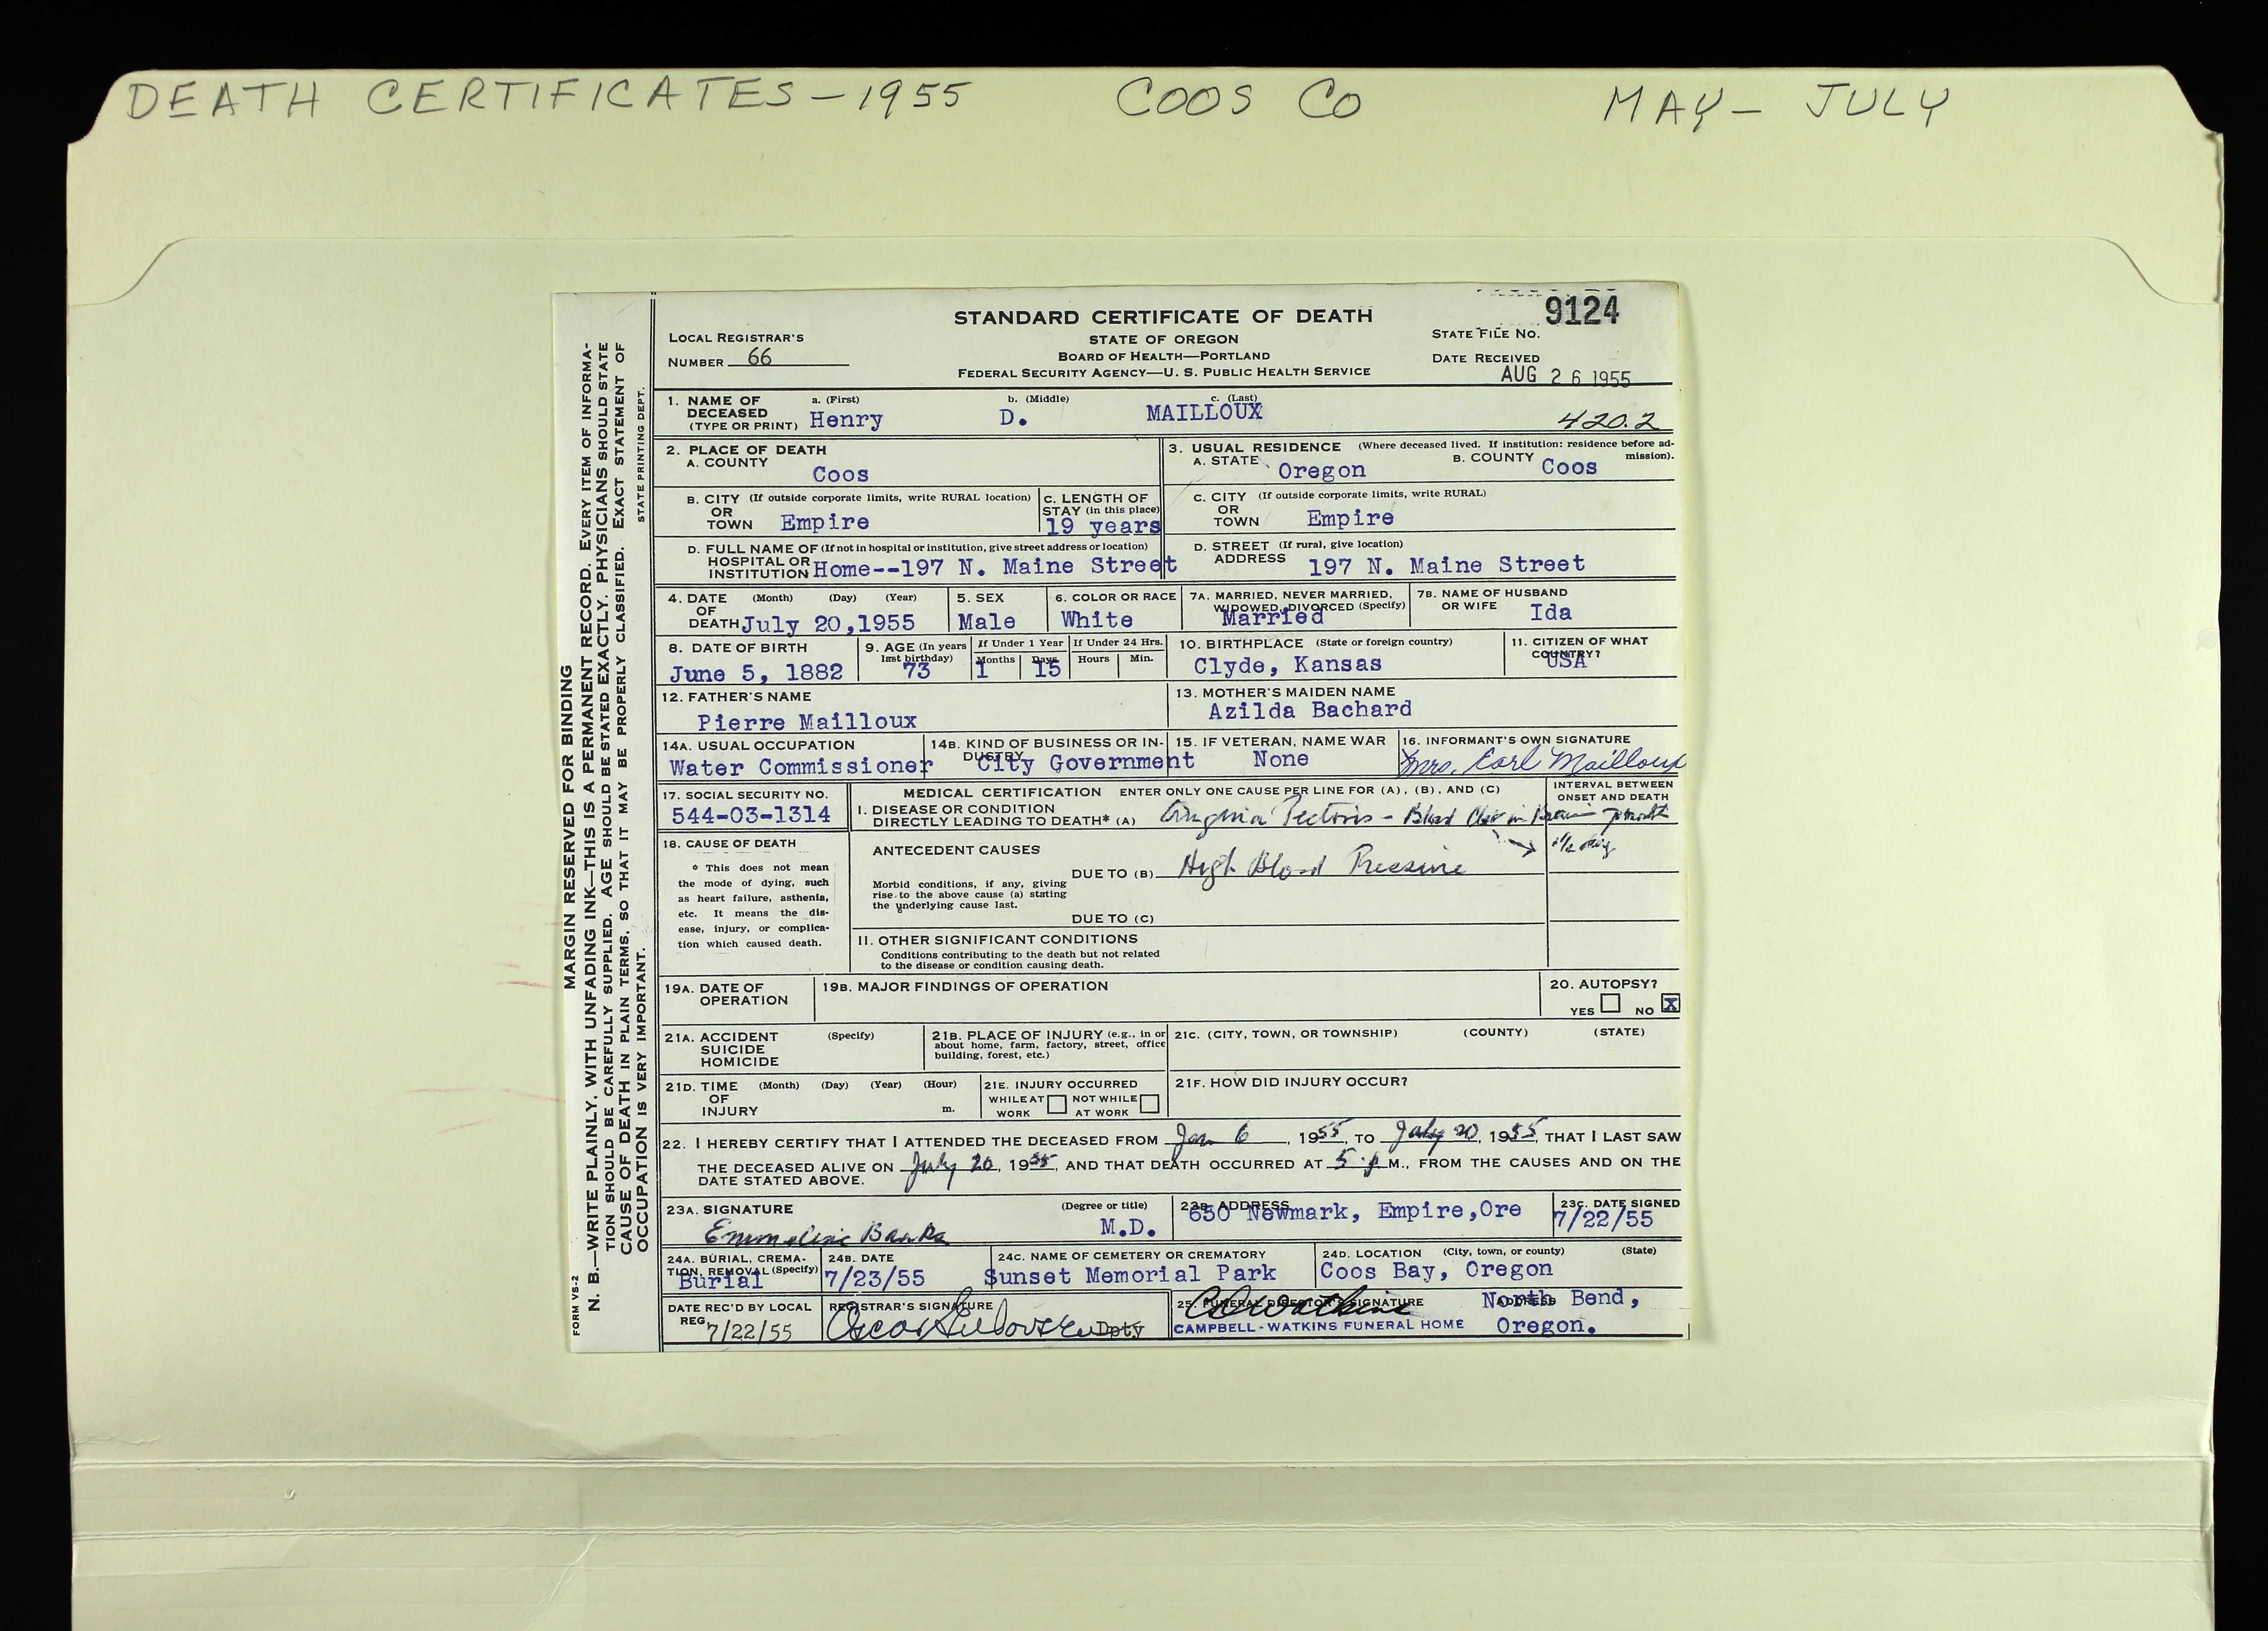 DEATH CERTIFICATES - 1955 COOS CO MAY - JULY
STANDARD CERTIFICATE OF DEATH
STATE OF OREGON
BOARD OF HEALTH—PORTLAND
FEDERAL SECURITY AGENCY—U. S. PUBLIC HEALTH SERVICE
LOCAL REGISTRAR'S
NUMBER 66
9124
STATE FILE NO.
DATE RECEIVED
AUG 26 1955
1. NAME OF DECEASED (TYPE OR PRINT)
a. (First) b. (Middle) c. (Last)
Henry D. MAILLOUX
420.2
2. PLACE OF DEATH
A. COUNTY
Coos
3. USUAL RESIDENCE (Where deceased lived. If institution: residence before admission).
A. STATE Oregon B. COUNTY Coos
B. CITY (If outside corporate limits, write RURAL location)
OR
TOWN Empire
C. LENGTH OF
STAY (in this place)
19 years
C. CITY (If outside corporate limits, write RURAL)
OR
TOWN Empire
D. FULL NAME OF (If not in hospital or institution, give street address or location)
HOSPITAL OR
INSTITUTION Home--197 N. Maine Street
D. STREET (If rural, give location)
ADDRESS 197 N. Maine Street
4. DATE (Month) (Day) (Year)
OF
DEATH July 20,1955
5. SEX
Male
6. COLOR OR RACE
White
7A. MARRIED, NEVER MARRIED,
WIDOWED, DIVORCED (Specify)
Married
7B. NAME OF HUSBAND
OR WIFE Ida
8. DATE OF BIRTH
June 5, 1882
9. AGE (In years
last birthday)
73
If Under 1 Year
Months Days
1 15
If Under 24 Hrs.
Hours Min.
10. BIRTHPLACE (State or foreign country)
Clyde, Kansas
11. CITIZEN OF WHAT
COUNTRY?
USA
12. FATHER'S NAME
Pierre Mailloux
13. MOTHER'S MAIDEN NAME
Azilda Bachard
14A. USUAL OCCUPATION
Water Commissioner
14B. KIND OF BUSINESS OR IN-
DUSTRY
City Government
15. IF VETERAN, NAME WAR
None
16. INFORMANT'S OWN SIGNATURE
Mrs. Earl Mailloux
17. SOCIAL SECURITY NO.
544-03-1314
MEDICAL CERTIFICATION ENTER ONLY ONE CAUSE PER LINE FOR (A), (B), AND (C)
INTERVAL BETWEEN
ONSET AND DEATH
I. DISEASE OR CONDITION
DIRECTLY LEADING TO DEATH* (A) Angina Pectoris - Blood Clot in Brain
18. CAUSE OF DEATH
* This does not mean
the mode of dying, such
as heart failure, asthenia,
etc. It means the dis-
ease, injury, or complica-
tion which caused death.
ANTECEDENT CAUSES
DUE TO (B) High Blood Pressure
Morbid conditions, if any, giving
rise to the above cause (a) stating
the underlying cause last.
DUE TO (C)
II. OTHER SIGNIFICANT CONDITIONS
Conditions contributing to the death but not related
to the disease or condition causing death.
19A. DATE OF
OPERATION
19B. MAJOR FINDINGS OF OPERATION
20. AUTOPSY?
YES NO X
21A. ACCIDENT (Specify)
SUICIDE
HOMICIDE
21B. PLACE OF INJURY (e.g., in or
about home, farm, factory, street, office
building, forest, etc.)
21C. (CITY, TOWN, OR TOWNSHIP) (COUNTY) (STATE)
21D. TIME (Month) (Day) (Year) (Hour)
OF
INJURY m.
21E. INJURY OCCURRED
WHILE AT WORK NOT WHILE AT WORK
21F. HOW DID INJURY OCCUR?
22. I HEREBY CERTIFY THAT I ATTENDED THE DECEASED FROM Jan 6, 1955, TO July 20, 1955, THAT I LAST SAW
THE DECEASED ALIVE ON July 20, 1955, AND THAT DEATH OCCURRED AT 5 p M., FROM THE CAUSES AND ON THE
DATE STATED ABOVE.
23A. SIGNATURE (Degree or title)
Emmeline Banks M.D.
23B. ADDRESS
650 Newmark, Empire,Ore
23C. DATE SIGNED
7/22/55
24A. BURIAL, CREMA-
TION, REMOVAL (Specify)
Burial
24B. DATE
7/23/55
24C. NAME OF CEMETERY OR CREMATORY
Sunset Memorial Park
24D. LOCATION (City, town, or county) (State)
Coos Bay, Oregon
DATE REC'D BY LOCAL
REG. 7/22/55
REGISTRAR'S SIGNATURE
Dpty
25. FUNERAL DIRECTOR'S SIGNATURE ADDRESS
CAMPBELL-WATKINS FUNERAL HOME
North Bend,
Oregon.
MARGIN RESERVED FOR BINDING
N. B.—WRITE PLAINLY, WITH UNFADING INK—THIS IS A PERMANENT RECORD. EVERY ITEM OF INFORMA-
TION SHOULD BE CAREFULLY SUPPLIED. AGE SHOULD BE STATED EXACTLY. PHYSICIANS SHOULD STATE
CAUSE OF DEATH IN PLAIN TERMS, SO THAT IT MAY BE PROPERLY CLASSIFIED. EXACT STATEMENT OF
OCCUPATION IS VERY IMPORTANT.
STATE PRINTING DEPT.
FORM VS-2